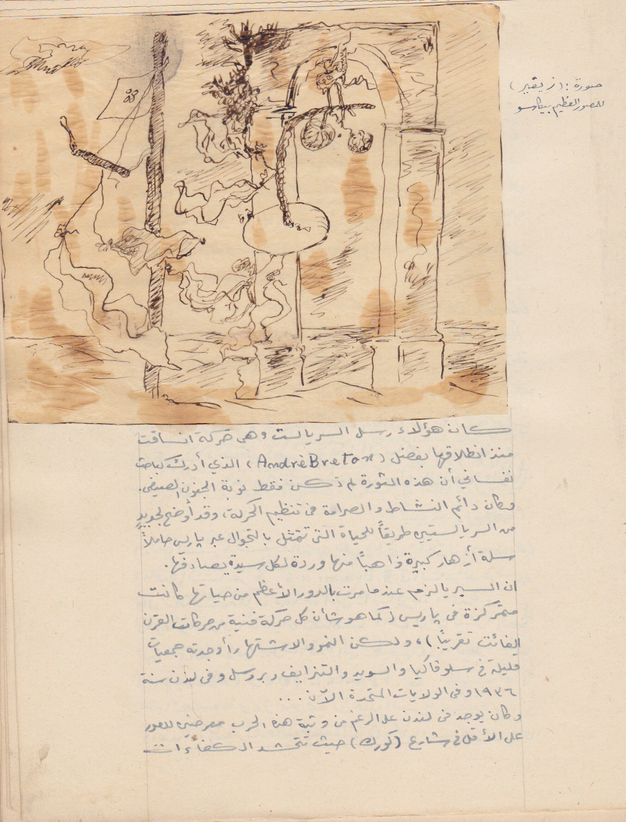 صورة : (زيقير)
للمصور العظيم بيكاسو
كان هؤلاء رسل السريالست وهي حركة انساقت
منذ انطلاقها بفضل (André Breton) الذي أدرك كباحث
نفساني أن هذه الثورة لم تكن فقط نوبة الجنون الصيفي.
وكان دائم النشاط والصرامة في تنظيم الحركة وقد أوضح لجديد
من السرياليستيين طريقاً للحياة التي تتمثل بالتجوال عبر باريس حاملاً
سلة أزهار كبيرة ذاهباً منها وردة لكل سيدة يصادفها.
ان السيريالزم عندما مرت بالدور الأعظم من حياتها كانت
متمركزة في باريس (كما هو شأن كل حركة فنية من حركات القرن
الفائت تقريباً)، ولكن النمو والاشتهار أوجدته جمعيات
قليلة في سلوفاكيا والسويد والتنرايف وبروسل وفي لندن سنة
١٩٣٦ وفي الولايات المتحدة الآن ...
وكان يوجد في لندن على الرغم من وثبة هذه الحرب معرضين للصور
على الأقل في شارع (كورك) حيث تتحشد الكفاءات